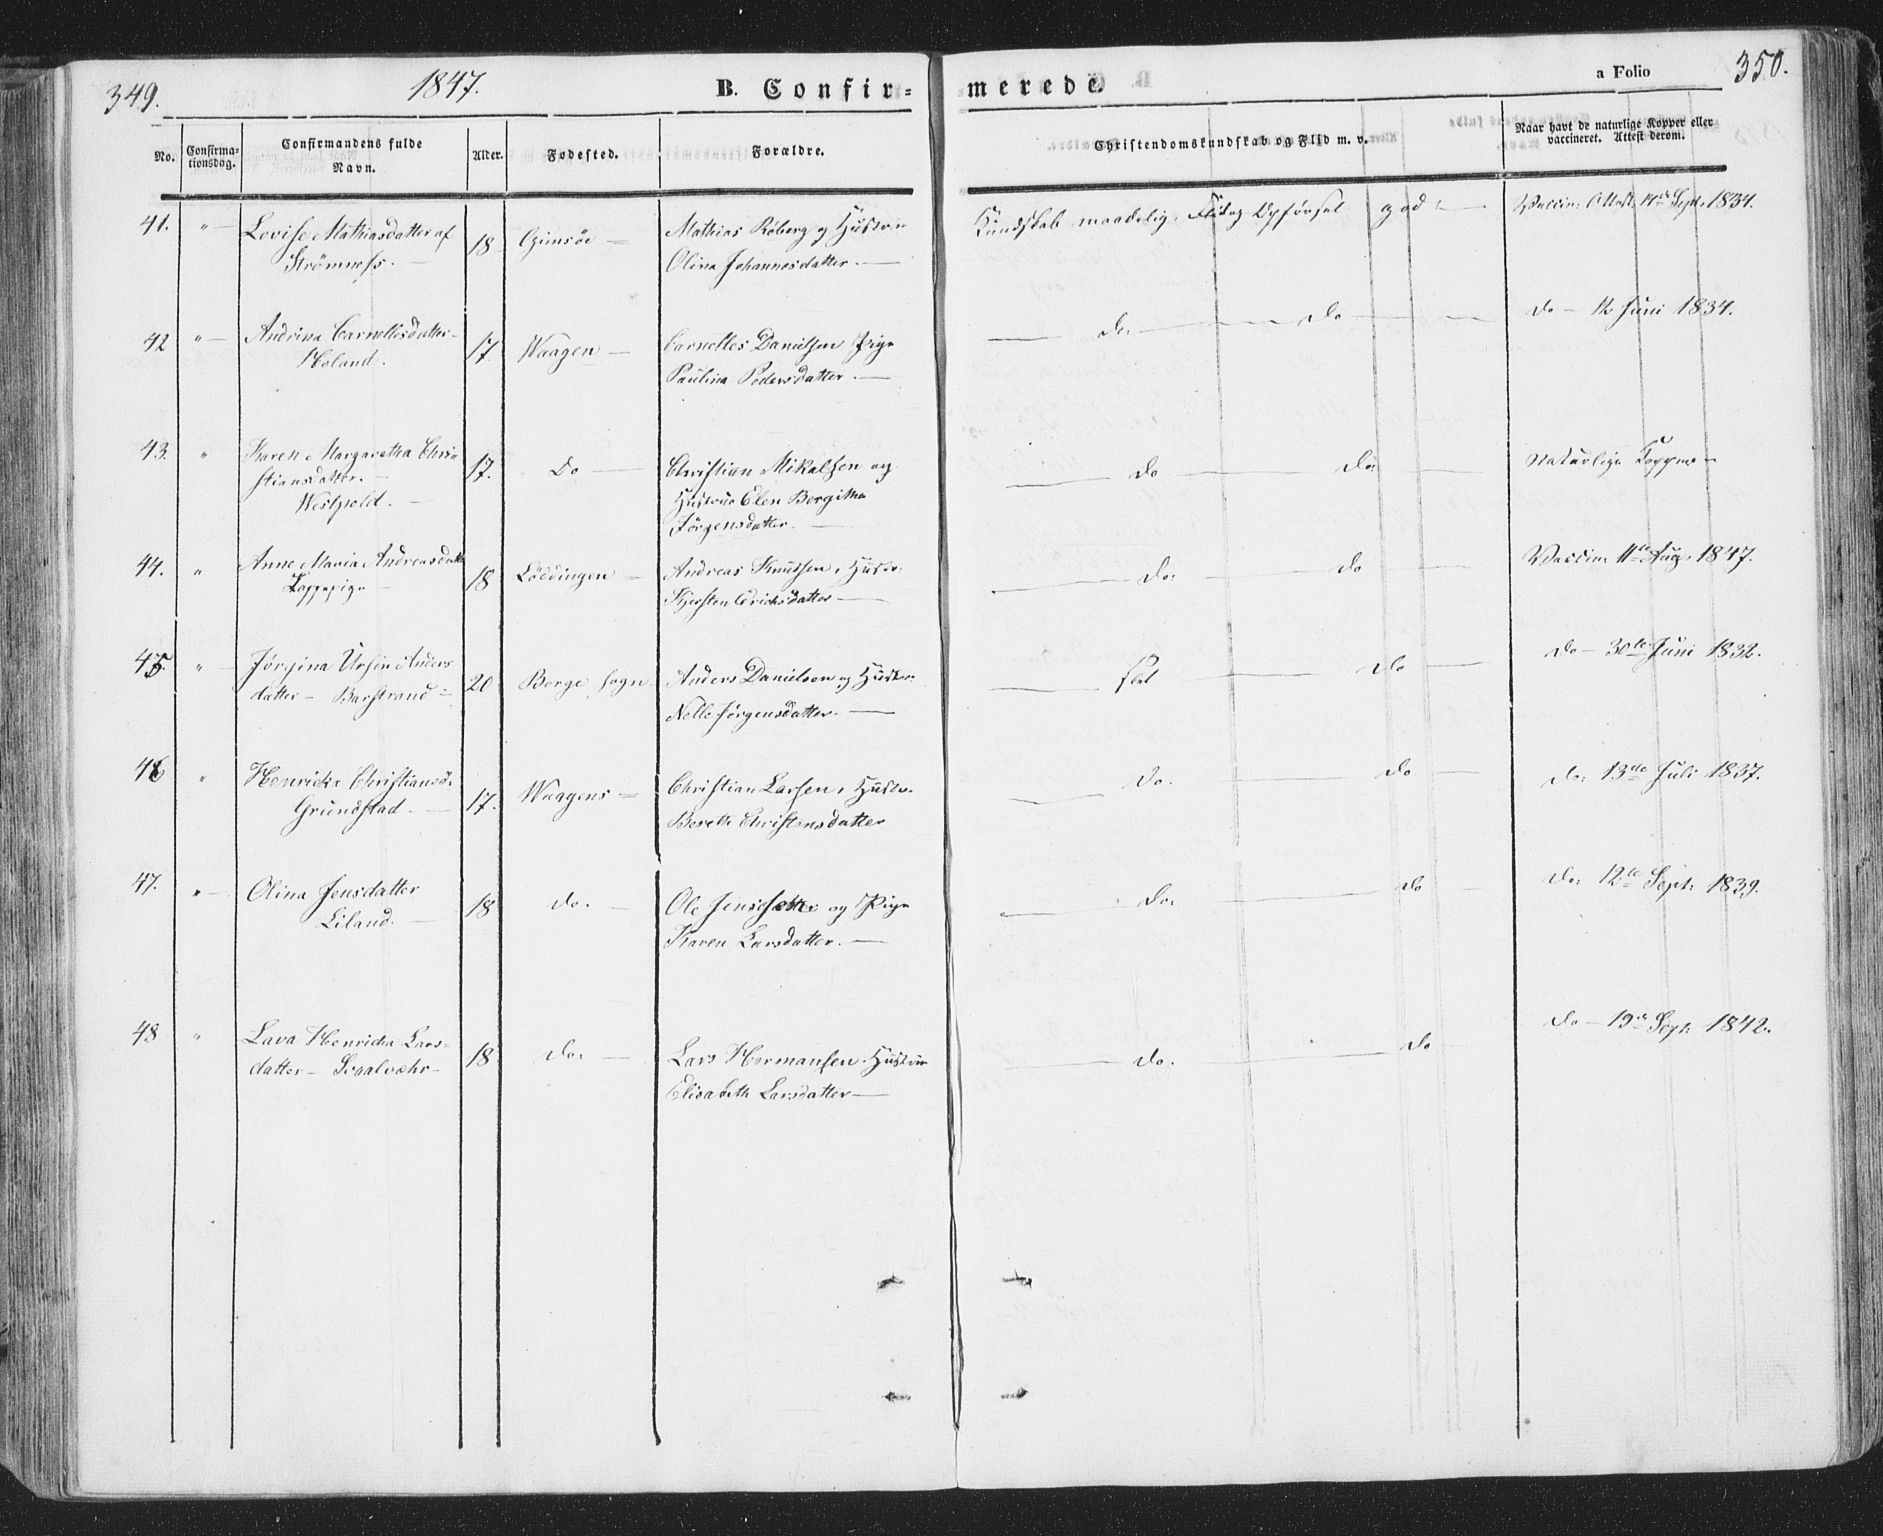 349. 1847. B. Confir- merede. a Folio 350.
No. Confirma-tionsdag. Confirmandens fulde Navn. Alder. Fødested. Forældre. Christendomskundskab og Flid m. v. Naar havt de naturlige Kopper eller vaccineret. Attest derom.
41. " Lovise Mathiasdatter af 18 Gimsøe Mathias Roberg og Hustrue Kundskab maadelig, Flid og Opførsel god Vaccin: Attest 14de Sept. 1834.
Strømness. Olina Johannesdatter.
42 " Andrine Cornellisdatter 17 Waagen Cornelles Danielsen Pige do do do 12 Juni 1834.
Holand. Paulina Pedersdatter.
43. " Karen Margaretha Chri- 17. Do Christian Mikalsen og do do Naturlige Kopper
stiansdatter. Hustrue Elen Bergitha
Westpold. Jörgensdatter.
44. " Anne Maria Andreasdatt 18 Löddingen Andreas Knutsen, Hustr: do: do Vaccin: 11te Aug: 1847.
Kjersten Ericksdatter
45. " Jörgina Ursin Anders 20 Borge Sogn Anders Danielsen og Hustr: do do 30te Juni 1832.
datter Barstrand Nelle Jörgensdatter.
46 " Henricke Christiansd: 17. Waagens Christian Larsen, Hustr. do. do do: 13de Juli 1837.
Grundstad. Bereth Christensdatter
47. " Olina Jensdatter 18 do. Ole og Pige do: do do: 12te Sept: 1839.
Liland. Karen Larsdatter.
48 " Lava Henricka Lars- 18 do: Lars Hermansen Hustrue do. do do 19de Sept: 1842.
datter Svaalvæhr Elisabeth Larsdatter